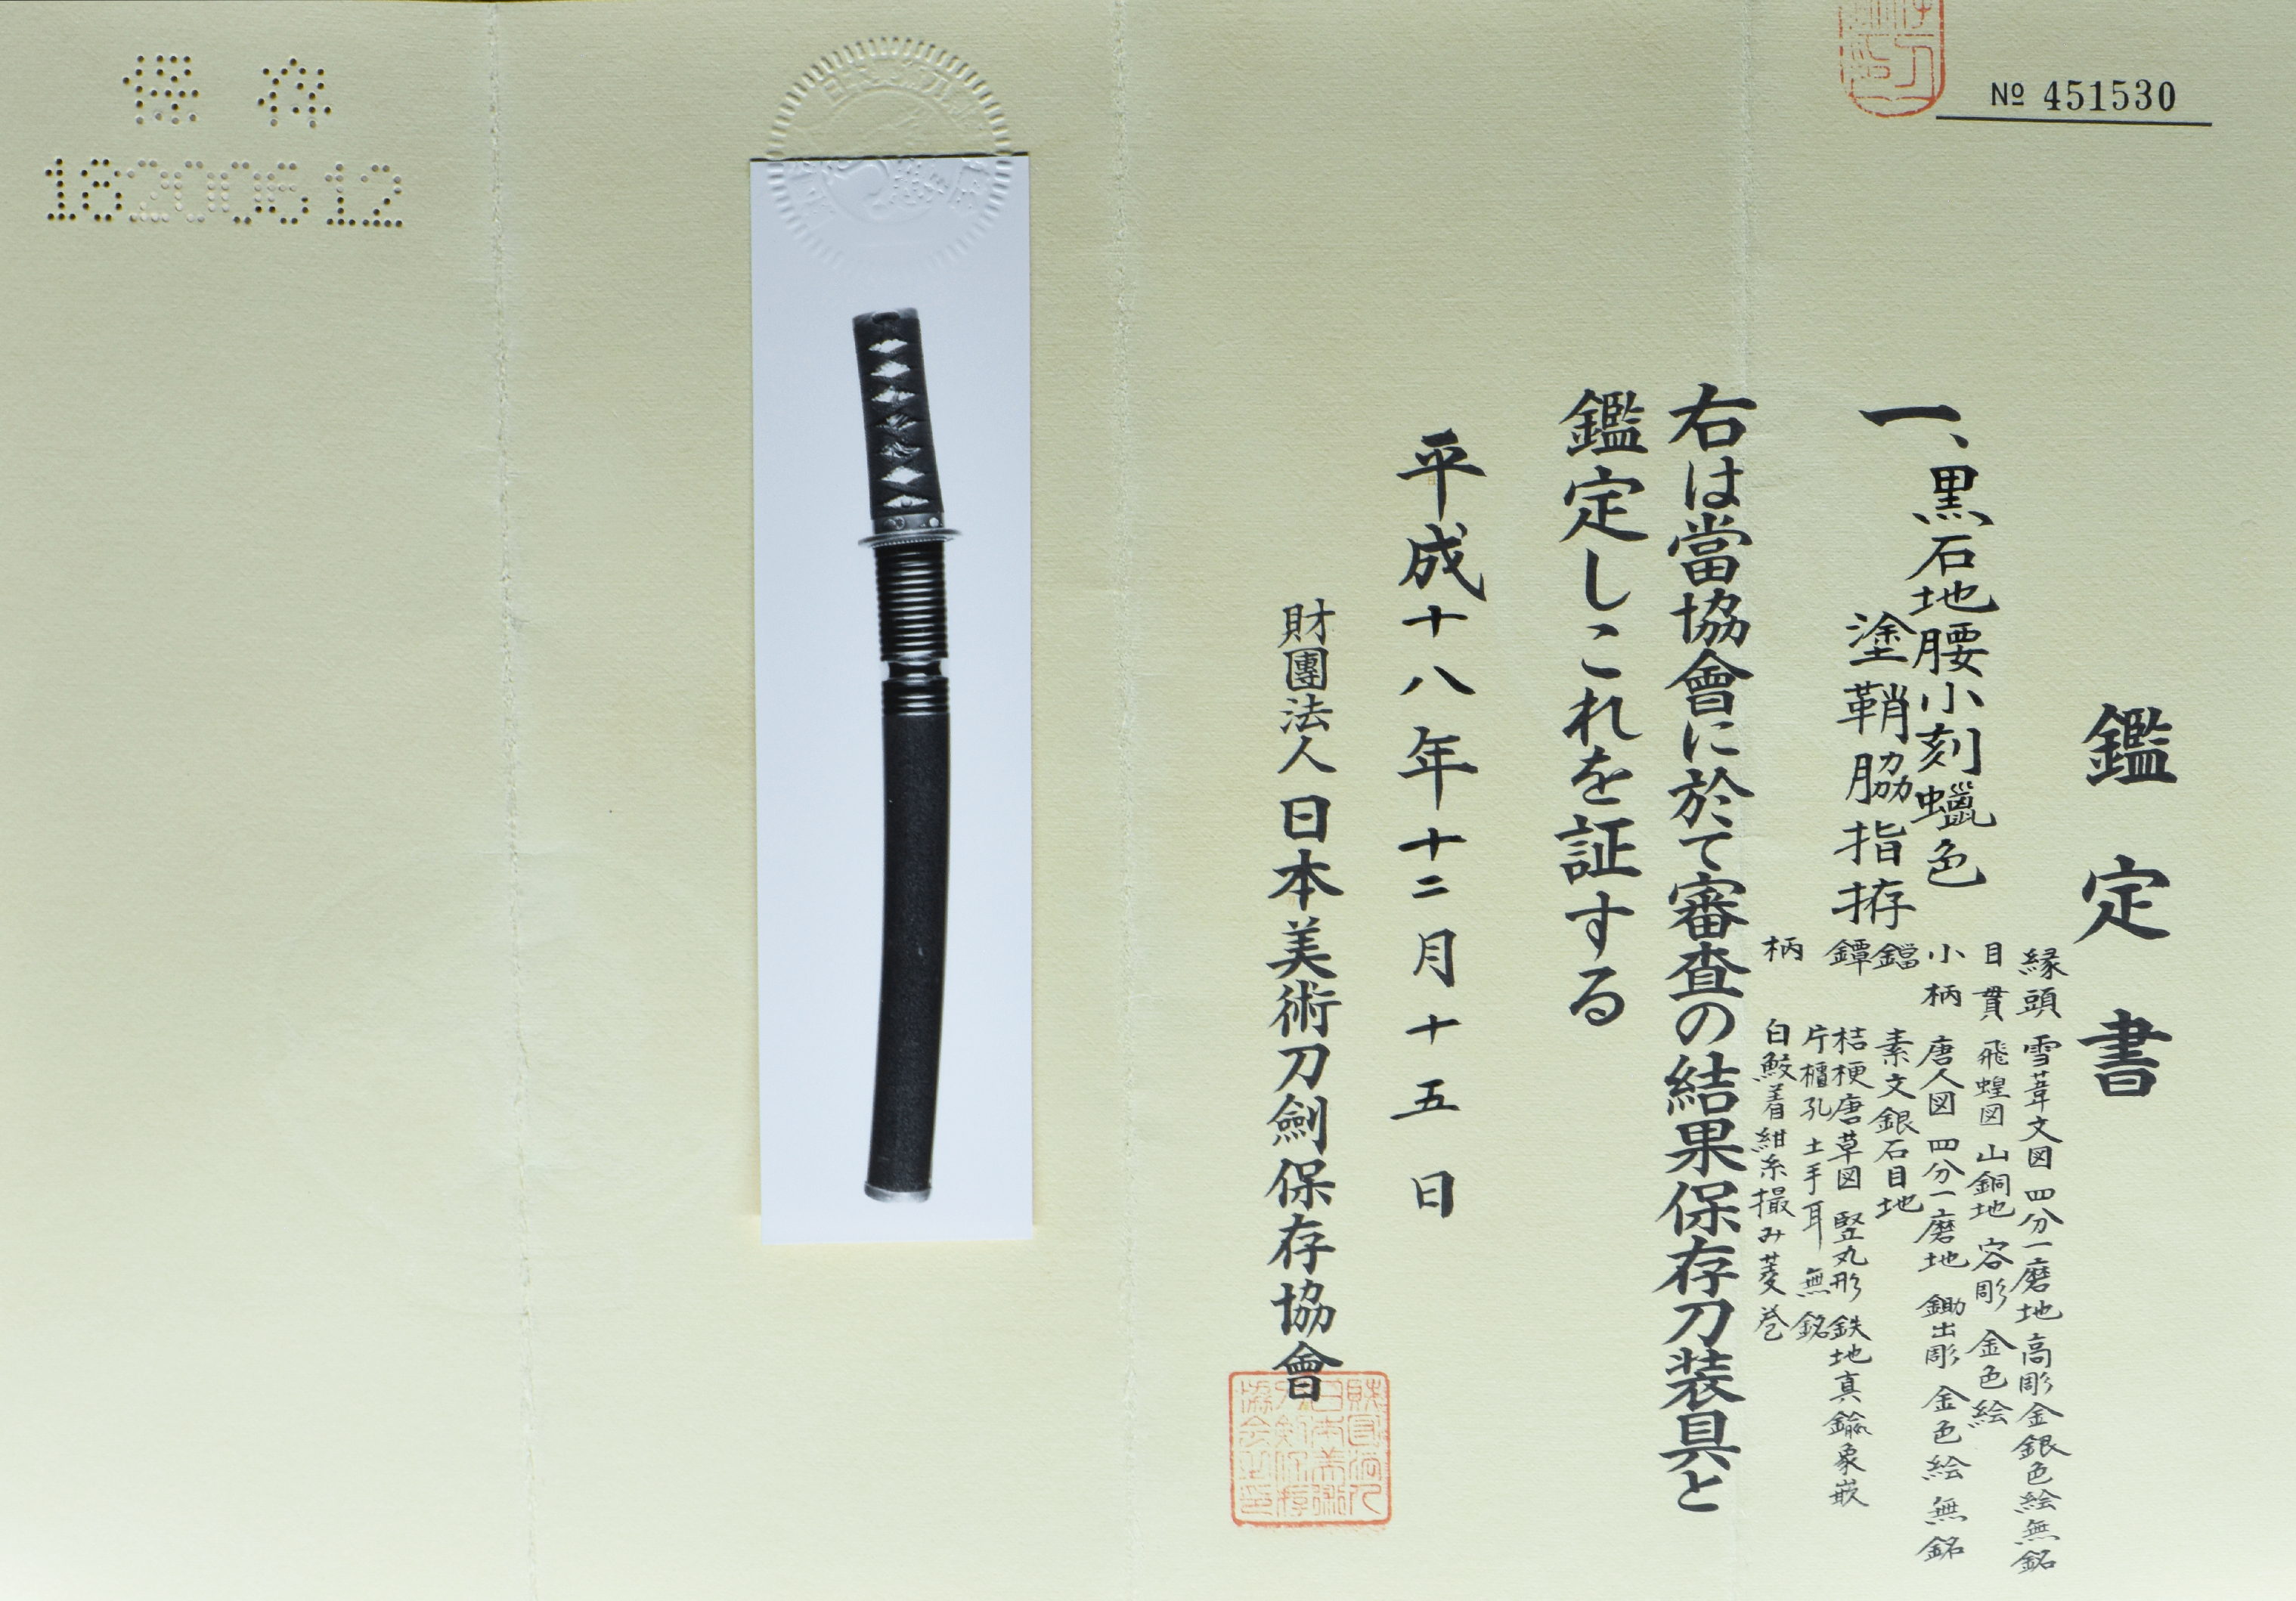 № 451530
鑑定書
一、黒石地腰小刻蠟色
塗鞘脇指拵
縁頭 雪葦文図 四分一磨地 高彫金銀色絵無銘
目貫 飛蝗図 山銅地 容彫 金色絵
小柄 唐人図 四分一磨地 鋤出彫 金色絵 無銘
鐺 素文銀石目地
鐔 桔梗唐草図 竪丸形 鉄地真鍮象嵌
片櫃孔 土手耳 無銘
柄 白鮫着紺糸撮み菱巻
右は當協會に於て審査の結果保存刀装具と
鑑定しこれを証する
平成十八年十二月十五日
財團法人 日本美術刀劍保存協會
保存
18200612